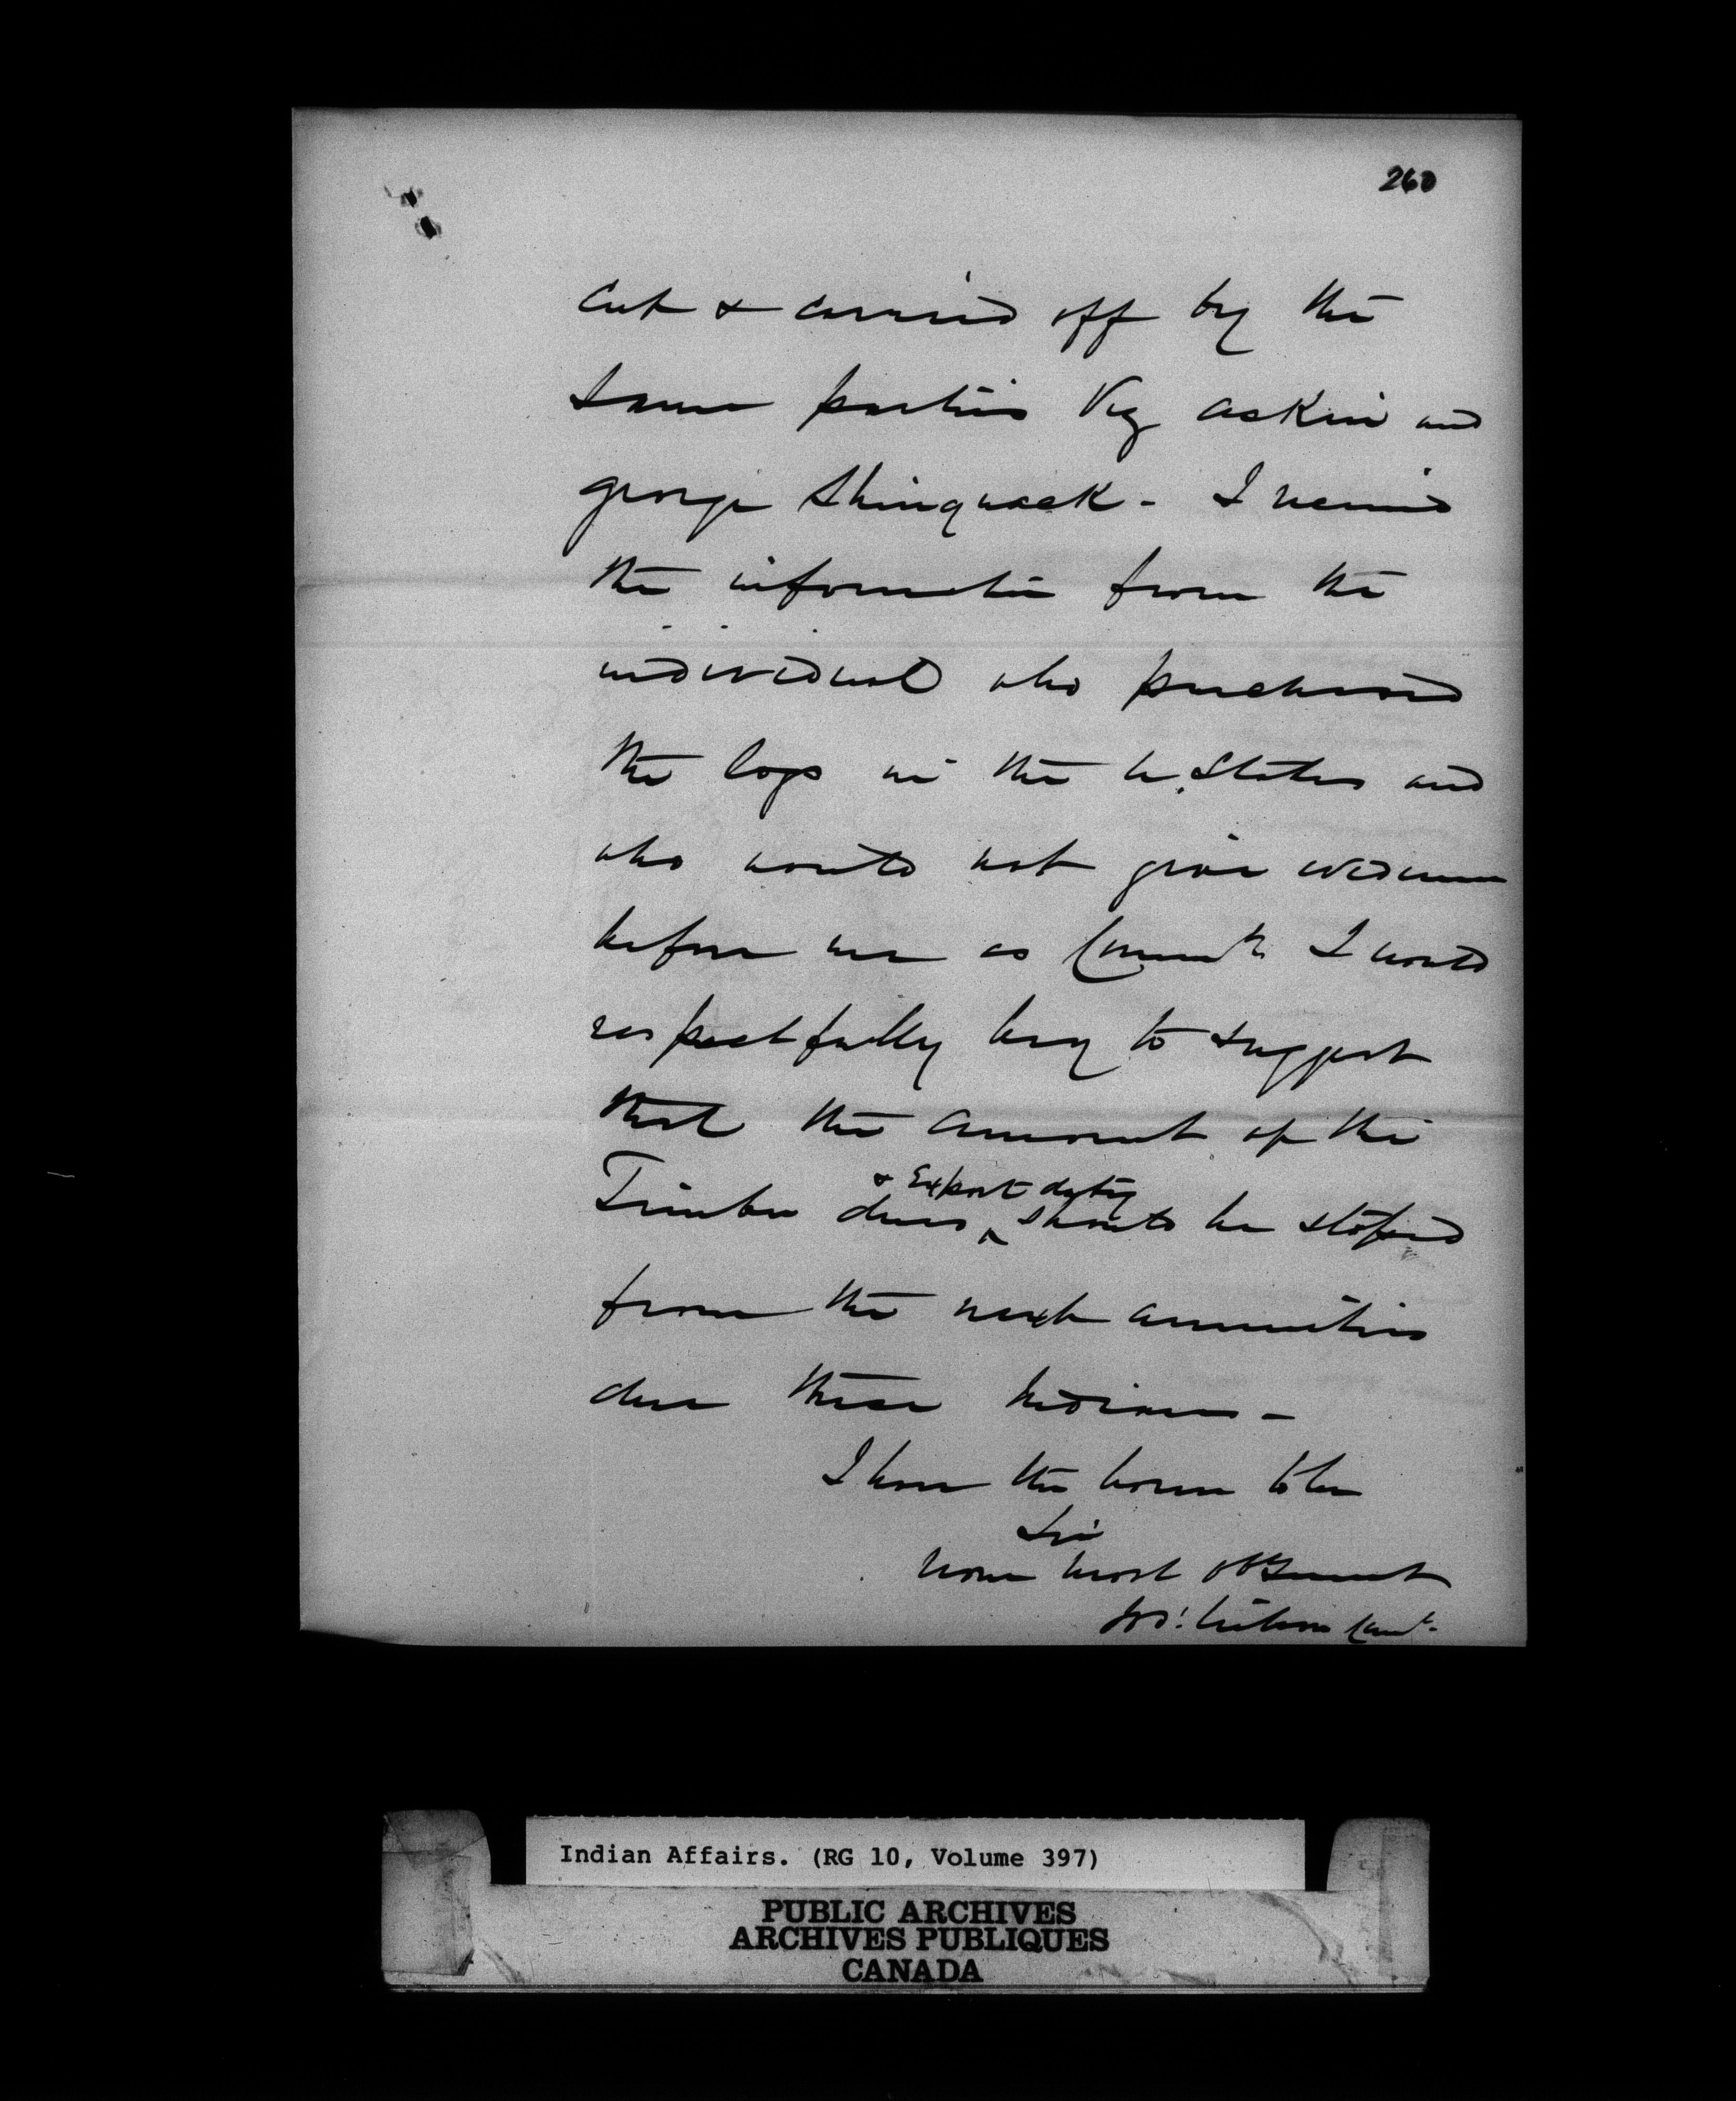 260
cut & carried off by the
same parties Viz askin and
george Shingwack - I received
the information from the
individual who purchased
the logs in the U. States and
who would not give evidence
before me as Commr. I would
respectfully beg to suggest
that the amount of the
& Export duty
Timber dues ‸ should be stoped
from the next annuities
due these Indians -
I have the honor to be
Sir
Your most obt Servant
Indian Affairs. (RG 10, Volume 397)
PUBLIC ARCHIVES
ARCHIVES PUBLIQUES
CANADA